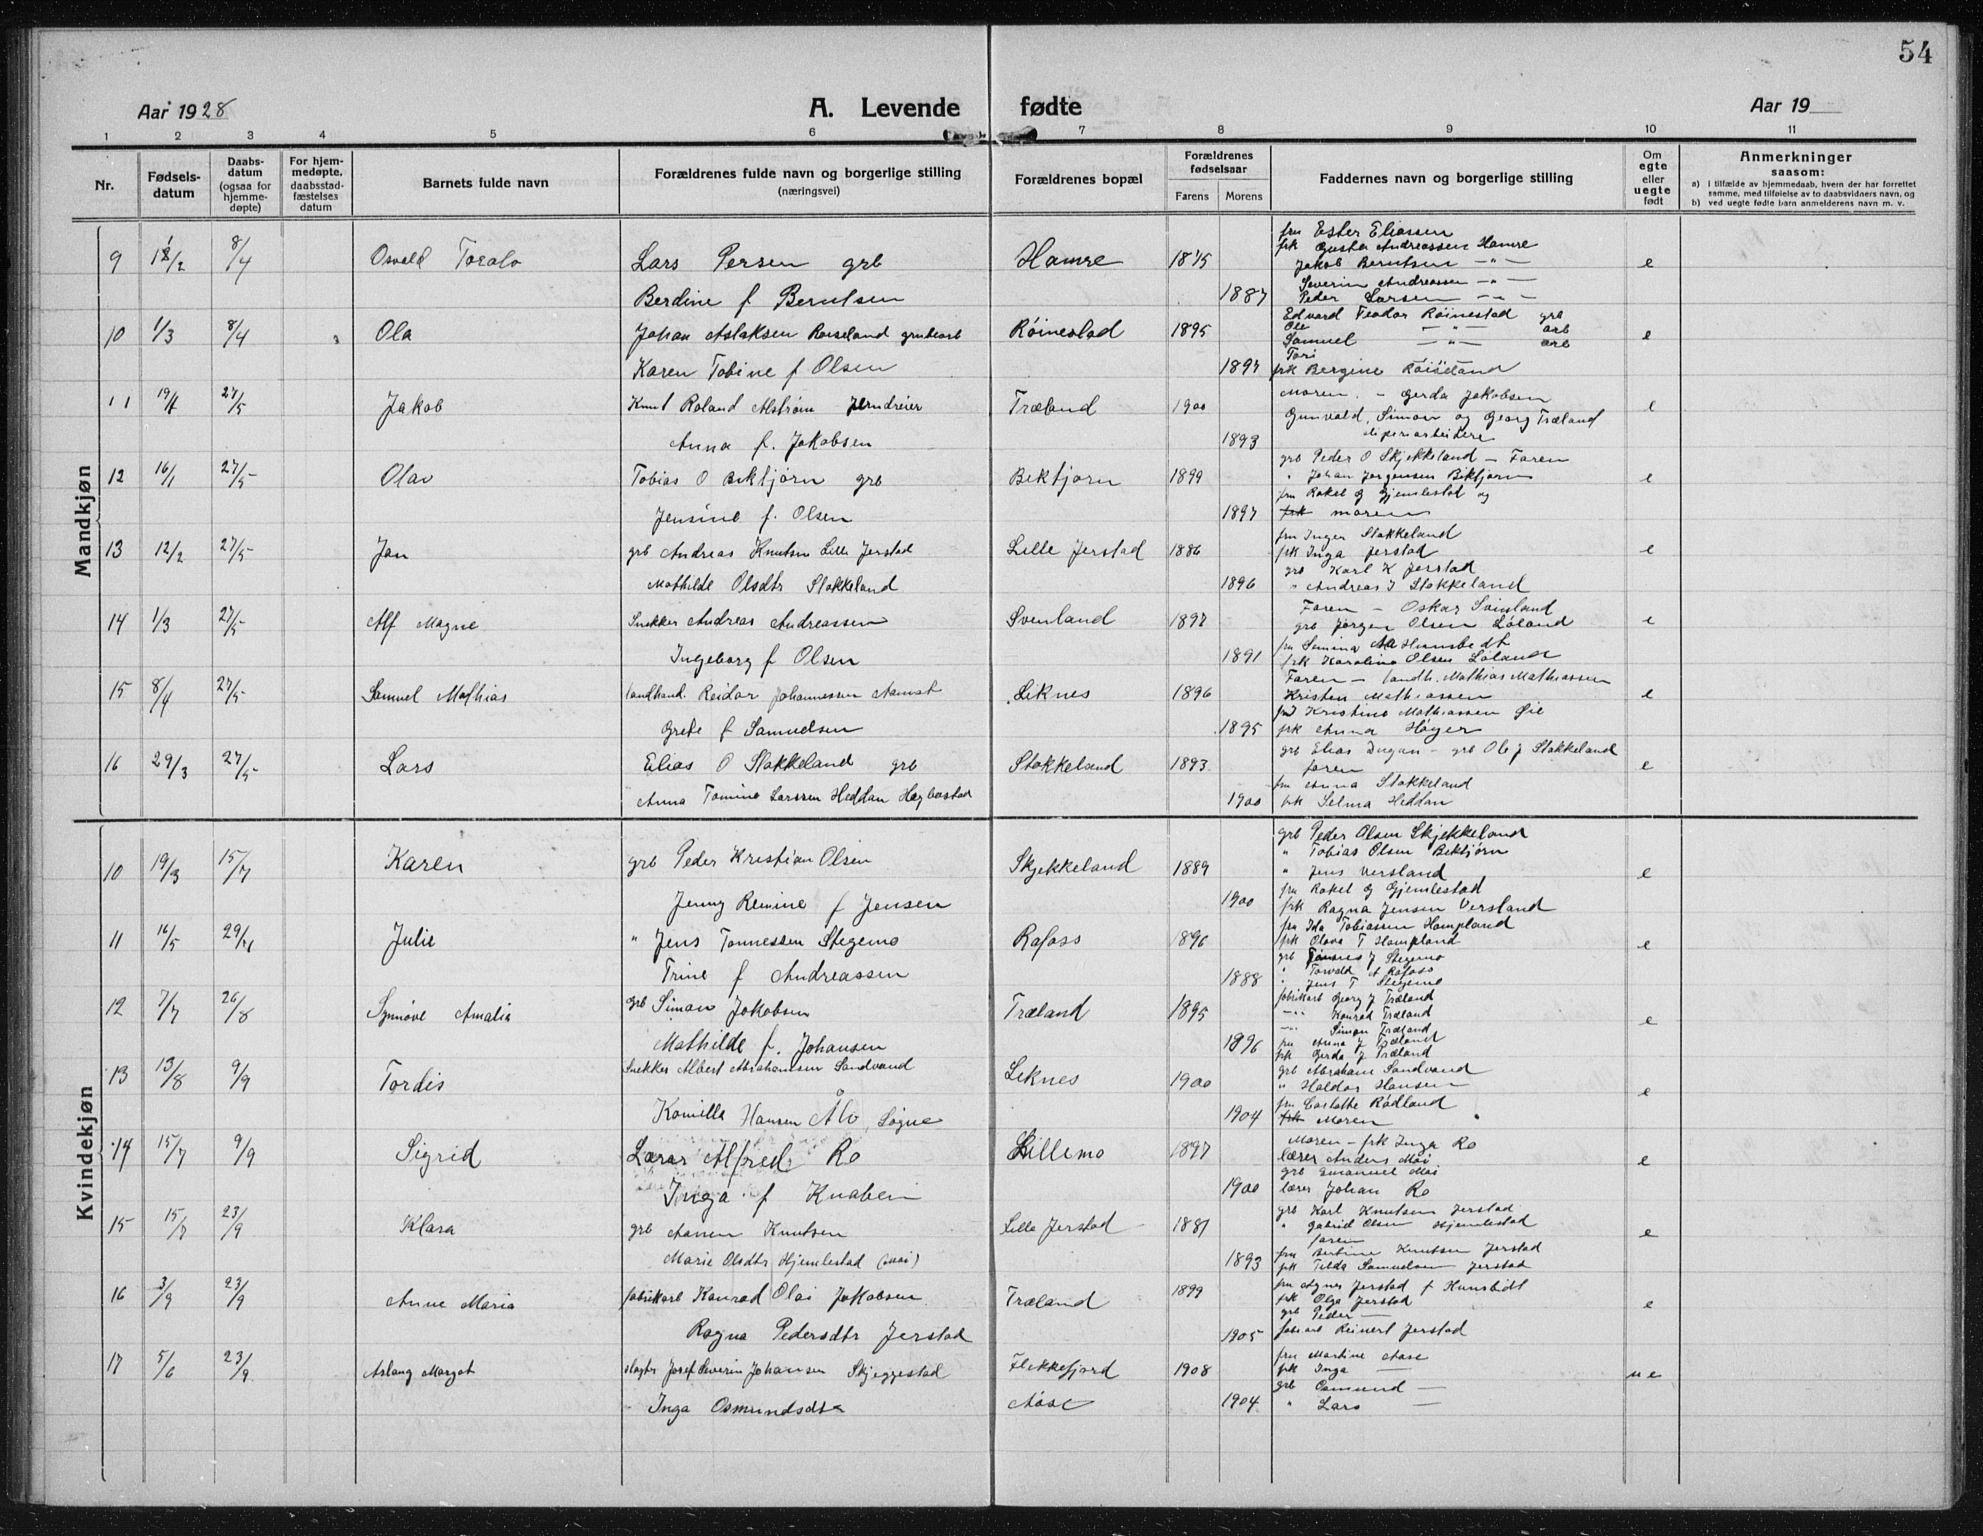 54
Aar 1928 A. Levende fødte Aar 19
1 2 3 4 5 6 7 8 9 10 11
Nr. Fødsels-datum Daabs-datum (ogsaa for hjemme-døpte) For hjem-medøpte, daabsstad-fæstelses datum Barnets fulde navn Forældrenes fulde navn og borgerlige stilling (næringsvei) Forældrenes bopæl Forældrenes fødselsaar Farens Morens Faddernes navn og borgerlige stilling Om egte eller uegte født Anmerkninger saasom:
a) i tilfælde av hjemmedaab, hvem der har forrettet samme, med tilføielse av to daabsvidners navn, og
b) ved uegte fødte barn anmelderens navn m. v.
Mandkjøn
fru Ester Eliassen
frk Gusta Andreassen Hamre
9 8/4 Osvald Toralv Lars Persen grb Hamre 1875 Jakob Berntsen - " - e
Severin Andreassen - " -
Berdine f Berntsen 1887 Peder Larsen - " -
Edvard Teodor Røinestad grb
10 1/3 8/4 Ola Johan Aslaksen Roiseland grubearb Røinestad 1895 Ole - " - arb e
Samuel - " - arb
Tori
Karen Tobine f Olsen 1897 frk Bergine Røiseland
Moren - Gerda Jakobsen
11 19/4 27/5 Jakob Knut Roland Alstrøm Jerndreier Træland 1900 Gunvald, Simon og Georg Træland e
Anna f. Jakobsen 1893 sliperiarbeidere
grb Peder O Skjekkeland - Faren
12 16/1 27/5 Olav Tobias O Bektjørn grb Bektjørn 1899 " Johan Jørgensen Bektjørn e
fru Rakel G Gjemlestad og
Jensine f. Olsen 1897 frk moren
fru Inger Stokkeland
13 12/2 27/5 Jan grb Andreas Knutsen Lille Jerstad Lille Jerstad 1886 frk Inga Jerstad e
grb Karl K Jerstad
Mathilde Olsdtr Stokkeland 1896 " Andreas J Stokkeland
Faren - Oskar Svinland
14 1/3 27/5 Alf Magne Snekker Andreas Andreassen Svenland 1897 grb Jørgen Olsen Løland e
fru Simina Aa Hunsbedt
Ingeborg f Olsen 1891 frk Karoline Olsen Løland
Faren - landh. Mathias Mathiassen
15 8/4 27/5 Samuel Mathias landhand. Reidar Johannessen Aamot Liknes 1896 Kristen Mathiassen e
fru Kristine Mathiassen Øie
Grete f Samuelsen 1895 frk Anna Høyer
grb Elias Dugan - grb Ole J Stokkeland
16 29/3 27/5 Lars Elias O Stokkeland grb Stokkeland 1893 faren e
fru Anna Stokkeland
Anna Tomine Larssen Heddan Hægbostad 1900 frk Selma Heddan
Kvindekjøn
grb Peder Olsen Skjekkeland
" Tobias Olsen Bektjørn
10 19/3 15/7 Karen grb Peder Kristian Olsen Skjekkeland 1889 " Jens Versland e
fru Rakel G Gjemlestad
Jenny Remine f Jensen 1900 frk Ragna Jensen Versland
fru Ida Tobiassen Hompland
11 16/5 Julie " Jens Tonnessen Stegemo Rafoss 1896 frk Olava T Hompland e
grb Tønnes J Stegemo
" Torvald A Rafoss
Trine f Andreassen 1888 " Jens T Stegemo
fabrikarb Georg J Træland
12 7/7 26/8 Synnøve Amalia grb Simon Jakobsen Træland 1895 - " - Konrad Træland e
- " - Simon Træland
fru Anna J Træland
Mathilde f. Johansen 1896 frk Gerda J Træland
13 13/8 9/9 Tordis Snekker Albert Abrahamsen Sandvand Liknes 1900 grb Abraham Sandvand e
" Haldor Hansen
fru Carlotte Rødland
Komilla Hansen Ålo, Søgne 1904 frk Moren
Moren - frk Inga Ro
14 15/7 9/9 Sigrid Lærer Alfred Ro Lillemo 1897 lærer Anders Moi e
grb Emanuel Moi
Inga f Knaben 1900 lærer Johan Ro
grb Karl Knutsen Jerstad
15 15/7 23/9 Klara grb Aanen Knutsen Lille Jerstad 1881 " Gabriel Olsen Hjemlestad e
faren
fru Bertine Knutsen Jerstad
Marie Olsdtr Hjemlestad (Moi) 1893 frk Tilda Samuelsen Jerstad
fru Agnes Jerstad f Hunsbedt
16 3/9 23/9 Anne Maria fabrikarb Konrad Olai Jakobsen Træland 1899 frk Olga Jerstad e
grb Peder -
Ragna Pedersdtr Jerstad 1905 fabarb Reinert Jerstad
fru Martine Aase
17 5/6 23/9 Aslaug Margot Josef Severin Johansen Skjeggestad Flekkefjord 1908 frk Inga - ue
grb Osmund -
Inga Osmundsdtr Aase 1904 " Lars -